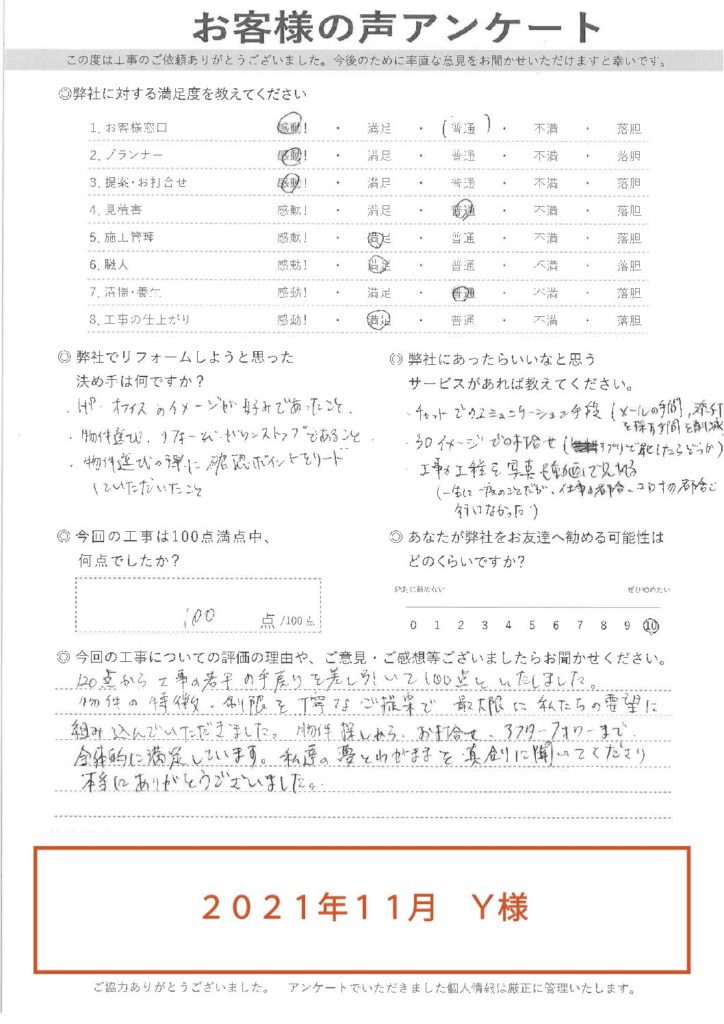 お客様の声アンケート
この度は工事のご依頼ありがとうございました。今後のために率直な意見をお聞かせいただけますと幸いです。
◎弊社に対する満足度を教えてください
1. お客様窓口 感動! ・ 満足 ・ (普通) ・ 不満 ・ 落胆
2. プランナー 感動! ・ 満足 ・ 普通 ・ 不満 ・ 落胆
3. 提案・お打合せ 感動! ・ 満足 ・ 普通 ・ 不満 ・ 落胆
4. 見積書 感動! ・ 満足 ・ 普通 ・ 不満 ・ 落胆
5. 施工管理 感動! ・ 満足 ・ 普通 ・ 不満 ・ 落胆
6. 職人 感動! ・ 満足 ・ 普通 ・ 不満 ・ 落胆
7. 清掃・養生 感動! ・ 満足 ・ 普通 ・ 不満 ・ 落胆
8. 工事の仕上がり 感動! ・ 満足 ・ 普通 ・ 不満 ・ 落胆
◎ 弊社でリフォームしようと思った
決め手は何ですか?
・HP、オフィスのイメージが好みであったこと、
・物件選び、リフォームがワンストップであること
・物件選びの際に確認ポイントをリード
していただいたこと
◎ 弊社にあったらいいなと思う
サービスがあれば教えてください。
・チャットでのコミュニケーション手段 (メールの手間、添付
を探す手間を削減
・3Dイメージでの打合せ (アプリで動したらどうか)
・工事の工程を写真も動画で見る
(一生に一度のことだが、仕事の都合、コロナの都合で
行けなかった)
◎ 今回の工事は100点満点中、
何点でしたか?
100 点 /100点
◎ あなたが弊社をお友達へ勧める可能性は
どのくらいですか?
絶対に勧めない ぜひ勧めたい
0 1 2 3 4 5 6 7 8 9 10
◎ 今回の工事についての評価の理由や、ご意見・ご感想等ございましたらお聞かせください。
120点から工事の若干の手戻りを差し引いて100点といたしました。
物件の特徴、制限を丁寧なご提案で最大限に私たちの要望に
組み込んでいただきました。物件探しから、お打合せ、アフターフォローまで、
全体的に満足しています。私達の夢とわがままを真剣に聞いてくださり
本当にありがとうございました。
2021年11月 Y様
ご協力ありがとうございました。 アンケートでいただきました個人情報は厳正に管理いたします。